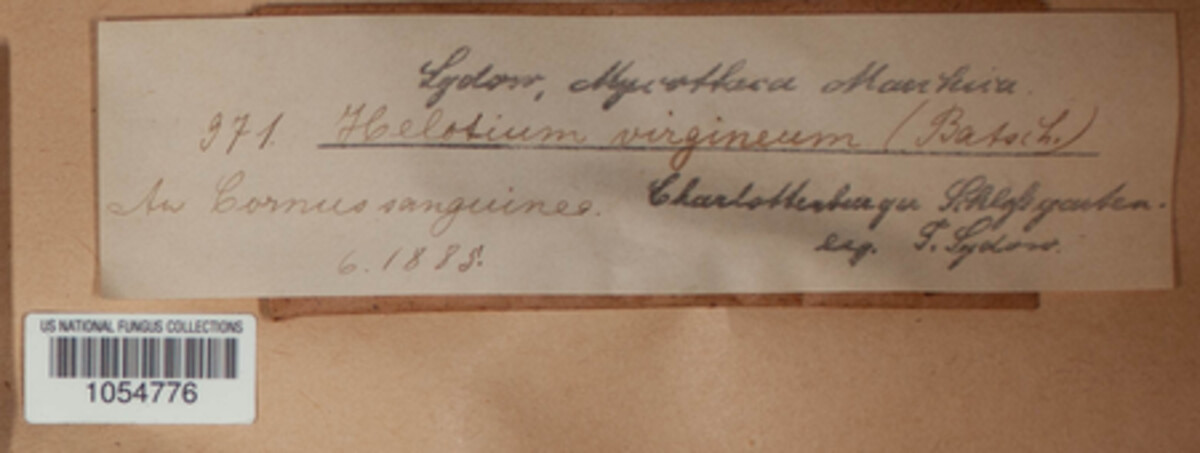 Sydow, Mycotheca Marchica.
971. Helotium virgineum (Batsch.)
An Cornus sanguinea. Charlottenburger Schloßgarten.
6. 1885. leg. P. Sydow.
US NATIONAL FUNGUS COLLECTIONS
1054776